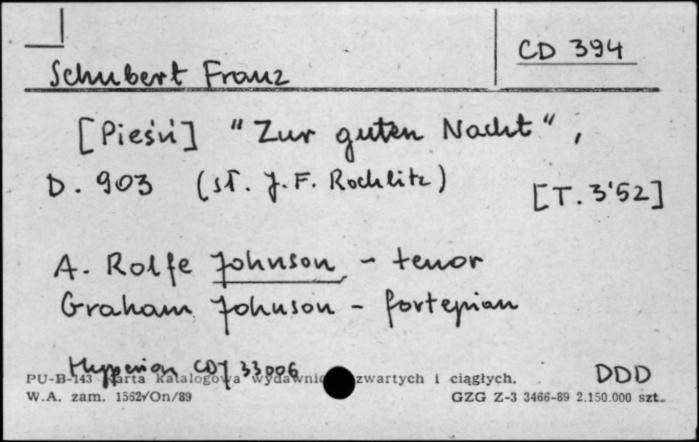 CD 394
Schubert Franz
[Pieśń] "Zur guten Nacht",
D. 903 (sł. J. F. Rochlitz) [T. 3'52]
A. Rolfe Johnson - tenor
Graham Johnson - fortepian
Hyperion CDJ 33006 DDD
PU-B-143 Karta katalogowa wydawnic zwartych i ciągłych.
W.A. zam. 1562/On/89 GZG Z-3 3466-89 2.150.000 szt.